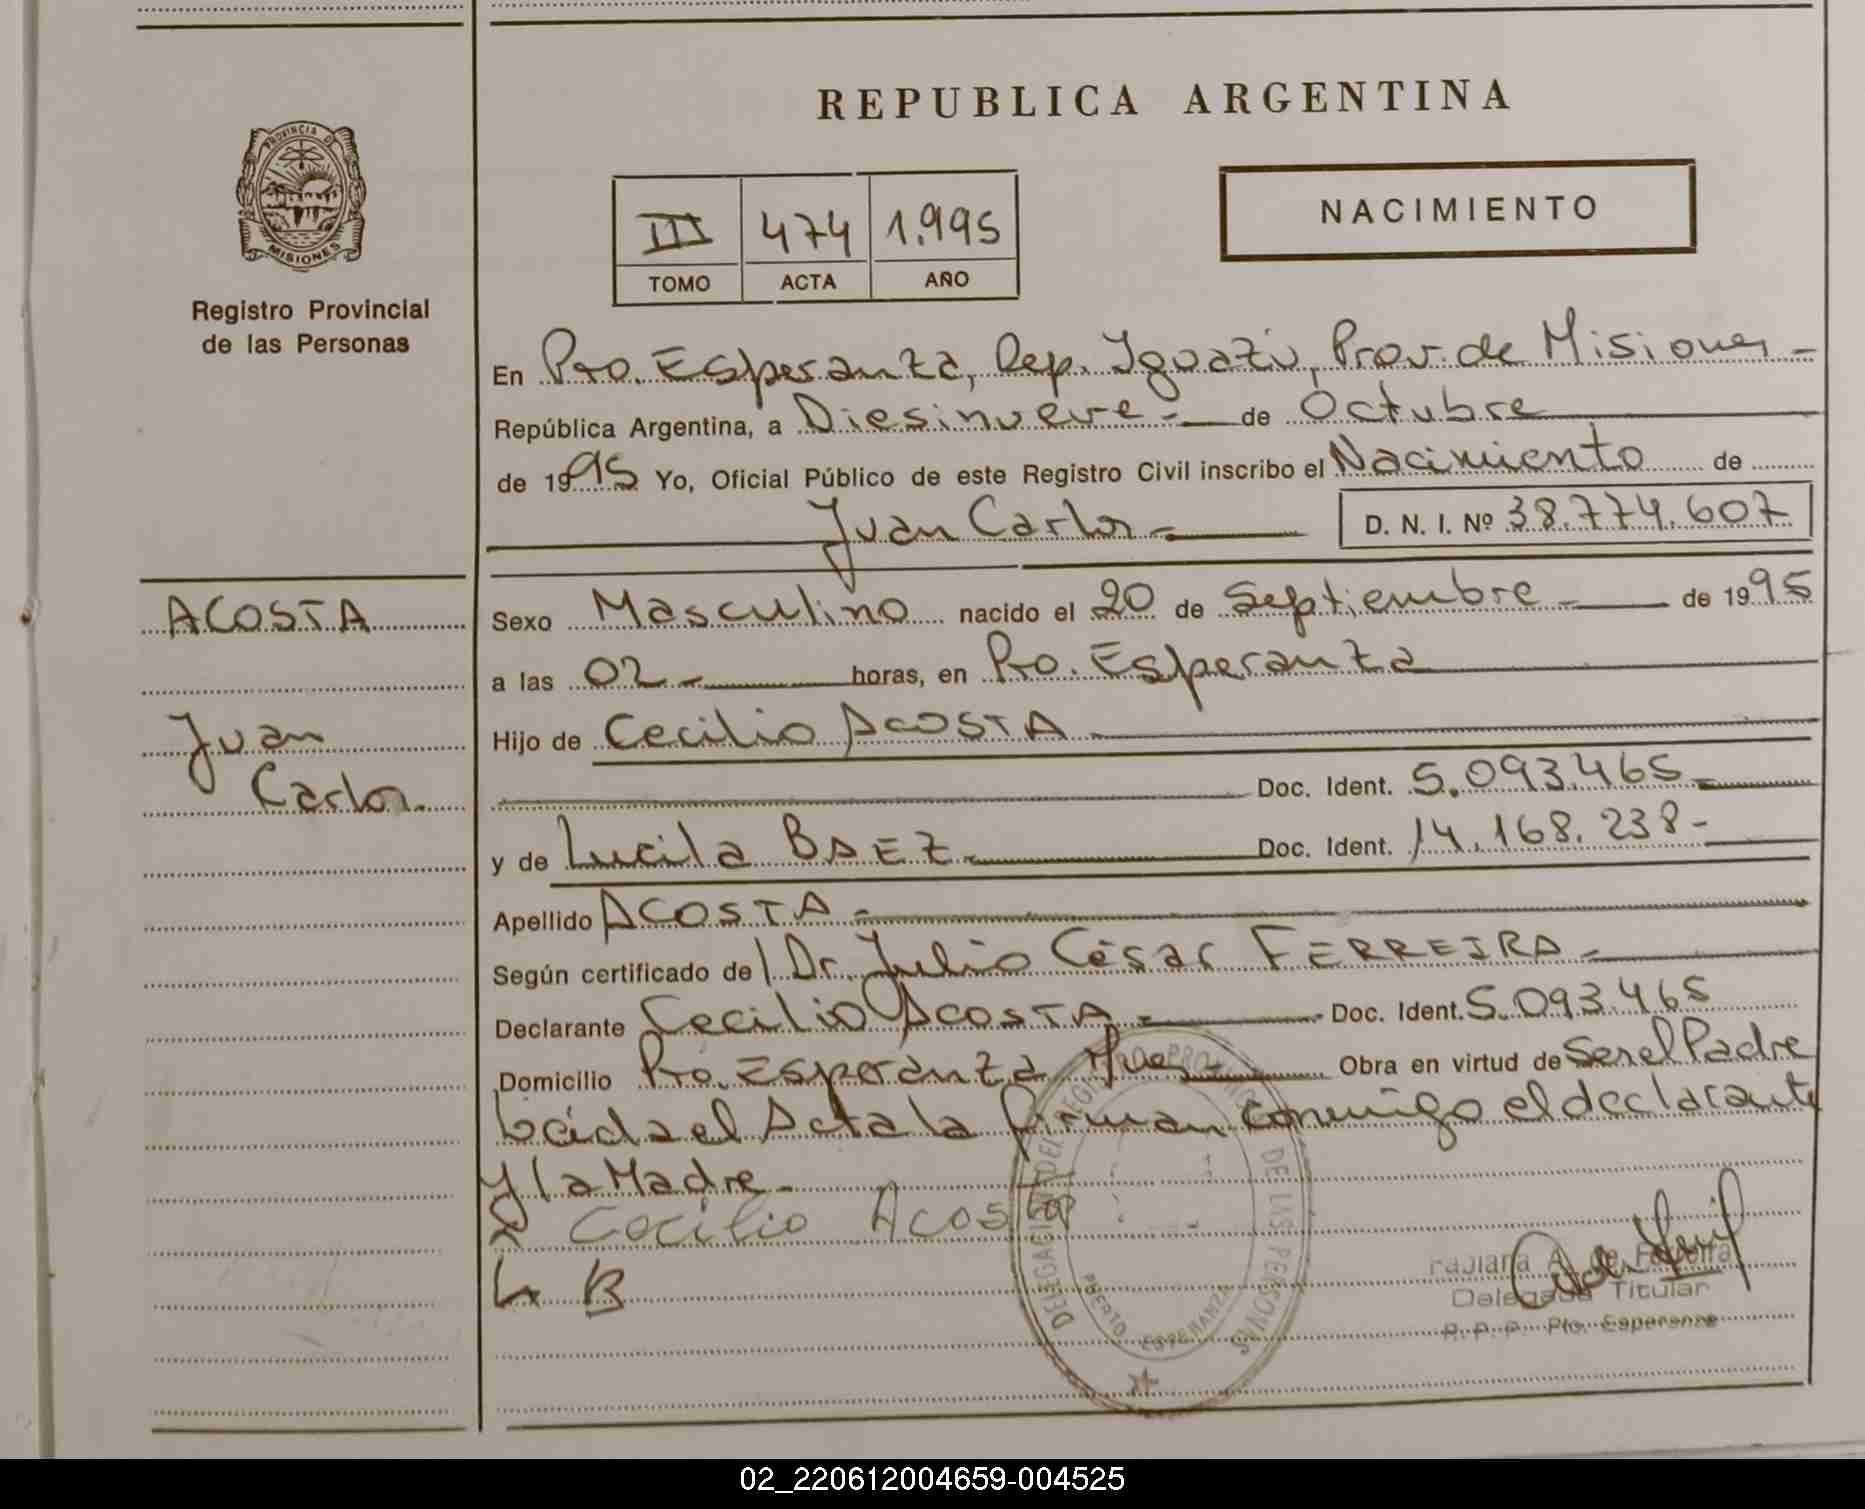 REPUBLICA ARGENTINA
PROVINCIA DE
MISIONES
Registro Provincial
de las Personas
III 474 1.995
TOMO ACTA AÑO
NACIMIENTO
En Pto. Esperanza, Dep. Iguazú, Prov. de Misiones -
República Argentina, a Diesinueve - de Octubre
de 1995 Yo, Oficial Público de este Registro Civil inscribo el Nacimiento de
Juan Carlos - D. N. I. Nº 38.774.607
ACOSTA
Juan
Carlos.
Sexo Masculino nacido el 20 de Septiembre - de 1995
a las 02 - horas, en Pto. Esperanza
Hijo de Cecilio ACOSTA -
Doc. Ident. 5.093.465 -
y de Lucila BAEZ - Doc. Ident. 14.168.238 -
Apellido ACOSTA -
Según certificado de Dr. Julio César FERREIRA -
Declarante Cecilio ACOSTA - Doc. Ident. 5.093.465
Domicilio Pto. Esperanza Mnes - Obra en virtud de Ser el Padre
Leída el Acta la firman conmigo el declarante
y la Madre -
Cecilio Acosta
L B
DELEGACION DEL REGISTRO PROVINCIAL DE LAS PERSONAS
PUERTO ESPERANZA
Delegada Titular
R. P. P. Pto. Esperanza
02_220612004659-004525